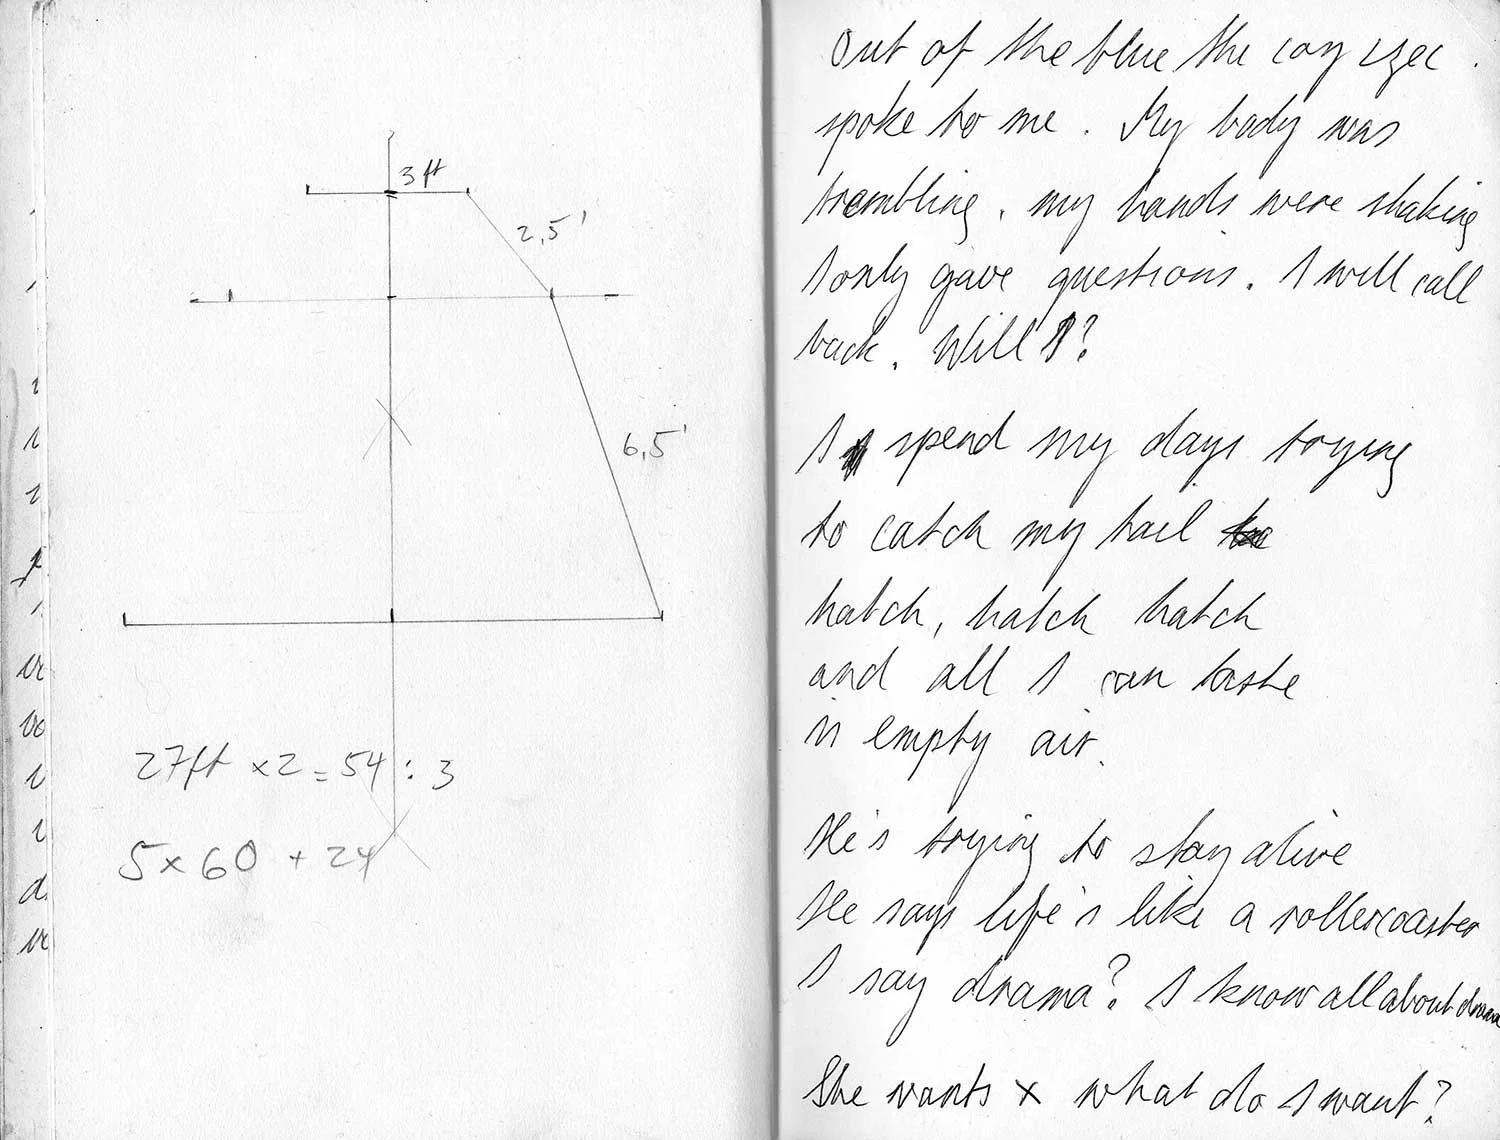 3 ft
2,5'
6,5'
27ft x2 = 54 : 3
5 x 60 + 24
Out of the blue the
spoke to me. My body was
trembling. my hands were shaking
I only gave questions. I will call
back. Will I?
I spend my days trying
to catch my tail
hatch, hatch hatch
and all I can taste
is empty air.
He's trying to stay alive
He says life's like a rollercoaster
I say drama? I know all about drama
She wants x what do I want?